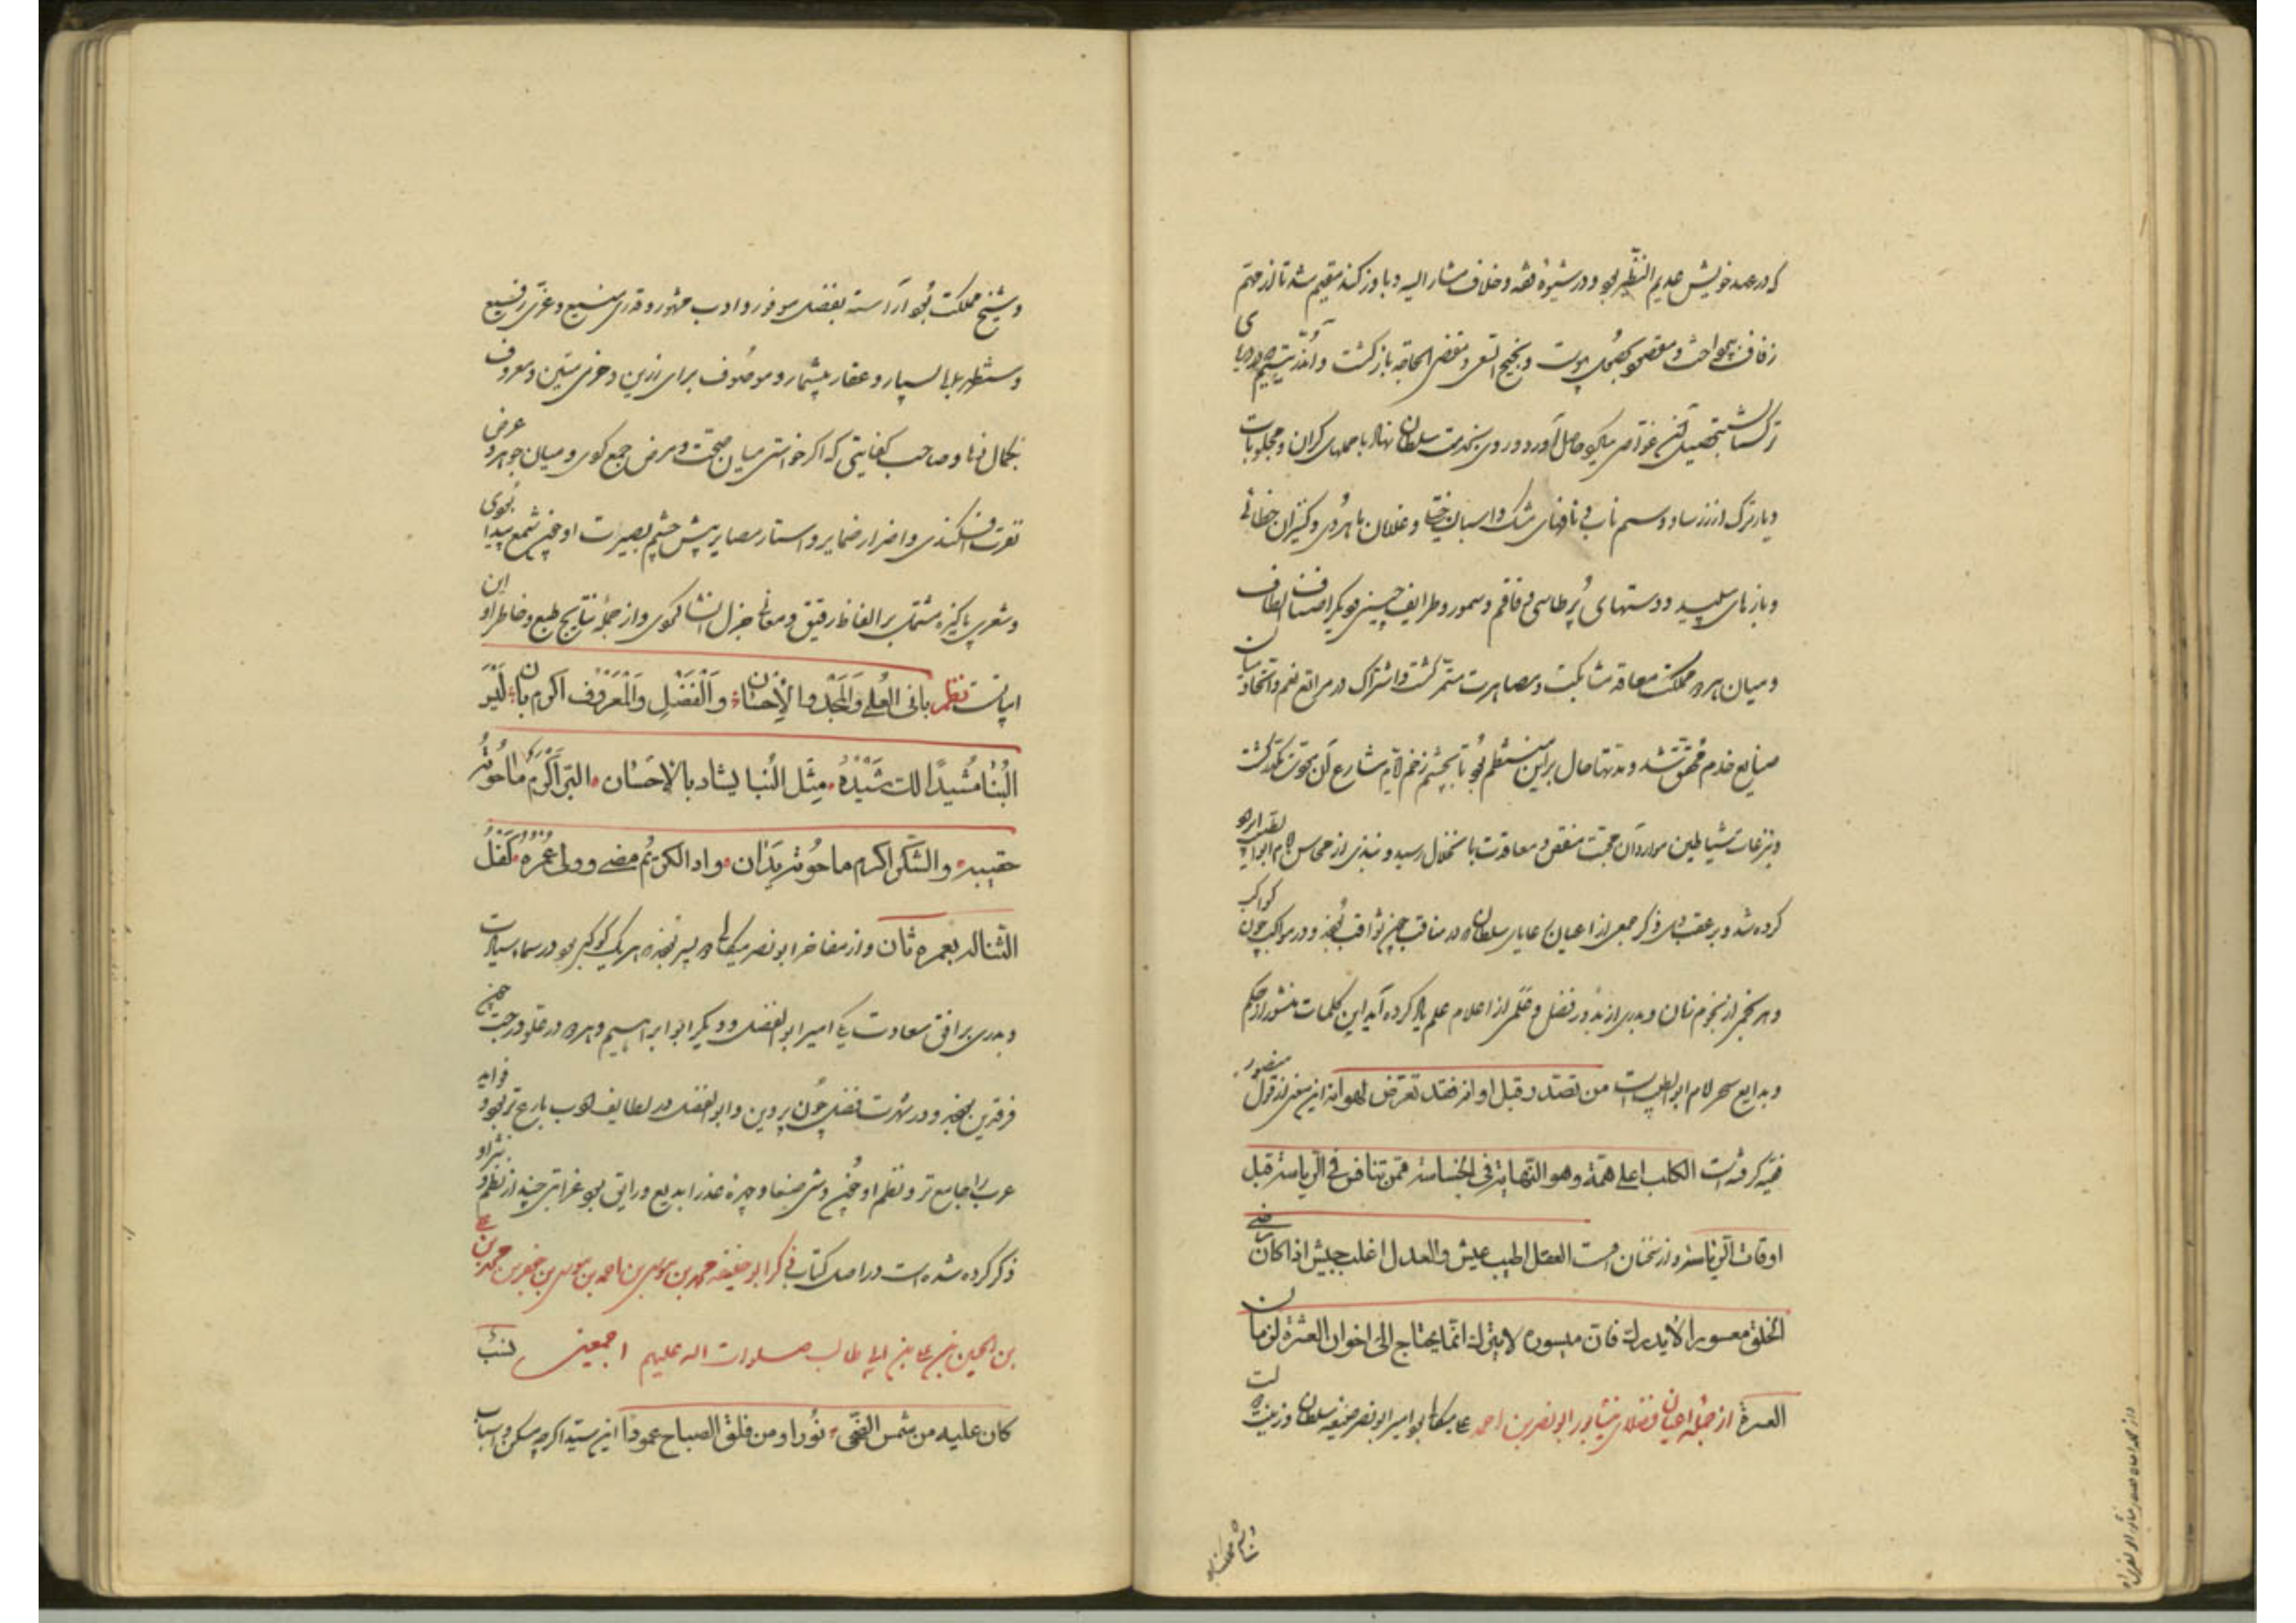 که در عهد خویش عدیم النظیر بود و در شیوهٔ فقه و خلاف مشار الیه و باوزکند مقیم شد تا از مهم
زفاف بپرداخت و مقصود بحصول پیوست و بنجیح السعی و مقضی الحاجة بازگشت و آنذر یتیم که دریای
ترکستان بتحصیل آن غواصی نیکو حاصل آورد و روی بخدمت سلطان نهاد با حملهای گران و مجلوبات
دیار ترک از زر ساو و سیم ناب و نافهای مشک و اسبان ختلی و غلامان ماهروی و کنیزان خطائی
و بازهای سپید و دستهای پر طاسی و قاقم و سمور و طرایف چینی و دیگر اصناف الطاف
و میان هر دو مملکت معاقد مشابکت و مصاهرت مستمر گشت و اشتراک در مراتع نعم و اتحاد میان
صنایع خدم محقق شد و مدتها حال براین منتظم بود تا بچشم زخم لایم مشارع آن نخوت مکدر گشت
و بنزغات شیاطین موارد آن محبت منغص و معاقدت بانحلال رسید و نبذی از محاسن امام ابوالطیب ایراد
کرده شد و بر عقب وی ذکر جمعی از اعیان رعایای سلطان که در مناقب چون ثواقب بودند و در مواکب چون کواکب
و هر نجمی از نجوم زمان و بدری از بدور فضل و علمی از اعلام علم یاد کرده آید این کلمات منثور از حکم
و بدایع سحر کلام ابوالطیب است من تصدر قبل اوانه فقد تعرض لهوانه این معنی از قول منصور
فقیه گرفته است الکلب اعلی همة وهو النهایة فی الخساسة ممن تنافس فی الریاسة قبل
اوقات الریاسة و از سخنان اوست العقل اطیب عیش والعدل اغلب جیش اذا کان رضی
الخلق معسورا لا یدرك فان میسوره لا یترك انما یحتاج الی اخوان العشرة لزمان
العسرة از جملهٔ اعیان فضلای نیشابور ابونصر بن احمد علی میکالی بود امیر ابونصر صنیعهٔ سلطان و زینت دولت
و شیخ مملکت بود آراسته بفضل موفور و ادب مشهور و قدری منیع و عزتی رفیع
و مستظهر بمال بسیار و عقار بیشمار و موصوف برای رزین و حزمی متین و معروف
بکمال دها و صاحب کفایتی که اگر خواستی میان صحت و مرض جمع کردی و میان جوهر و عرض
تفرقه افکندی و اضرار ضمایر و استار مصایر پیش چشم بصیرت او چون شمع پیدا بودی
و شعری پاکیزه مشتمل بر الفاظ رقیق و معانی جزل انشا کردی و از جملهٔ نتایج طبع و خاطر او این
ابیاتست نظم بانی العلی والمجد والإحسان والفضل والمعروف اکرم بان لیس
البنا مشیدا لك شیده مثل البنا یشاد بالاحسان البر اکرم ما حوته
حقیبة والشکر اکرم ما حوته یدان واذا الکریم مضی وولی عمره کفل
الثنا له بعمره ثان و از مفاخر ابونصر میکالی دو پسر بودند هر یک کوکبی بود در سماء سیادت
و بدری بر افق سعادت یکی امیر ابوالفضل و دیگر ابو ابراهیم و هر دو در علو درجت چون
فرقدین بودند و در شهرت فضل چون پروین و ابوالفضل در لطایف ادب بارع تر بود و فواید
عرب را جامع تر و نظم او چون وشی صنعا و چهرهٔ عذرا بدیع و رایق بود غرابتی چند از نظم و نثر او
ذکر کرده شده است در اصل کتاب ذکر ابو جعفر محمد بن موسی بن احمد بن موسی بن جعفر بن محمد بن علی
بن الحسین بن علی بن ابی طالب صلوات الله علیهم اجمعین نسب
کان علیه من شمس الضحی نورا ومن فلق الصباح عمودا این سید اگرچه مسکن و اسباب